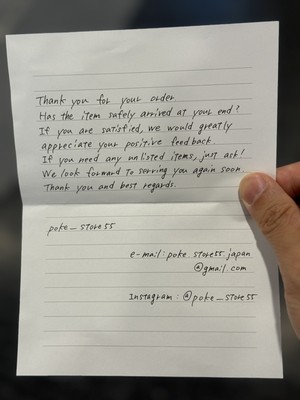 Thank you for your order
Has the item safely arrived at your end?
If you are satisfied, we would greatly
appreciate your positive feedback.
If you need any unlisted items, just ask!
We look forward to serving you again soon.
Thank you and best regards.
poke_store55
e-mail: poke.store55.japan
@gmail.com
Instagram: @poke_store55